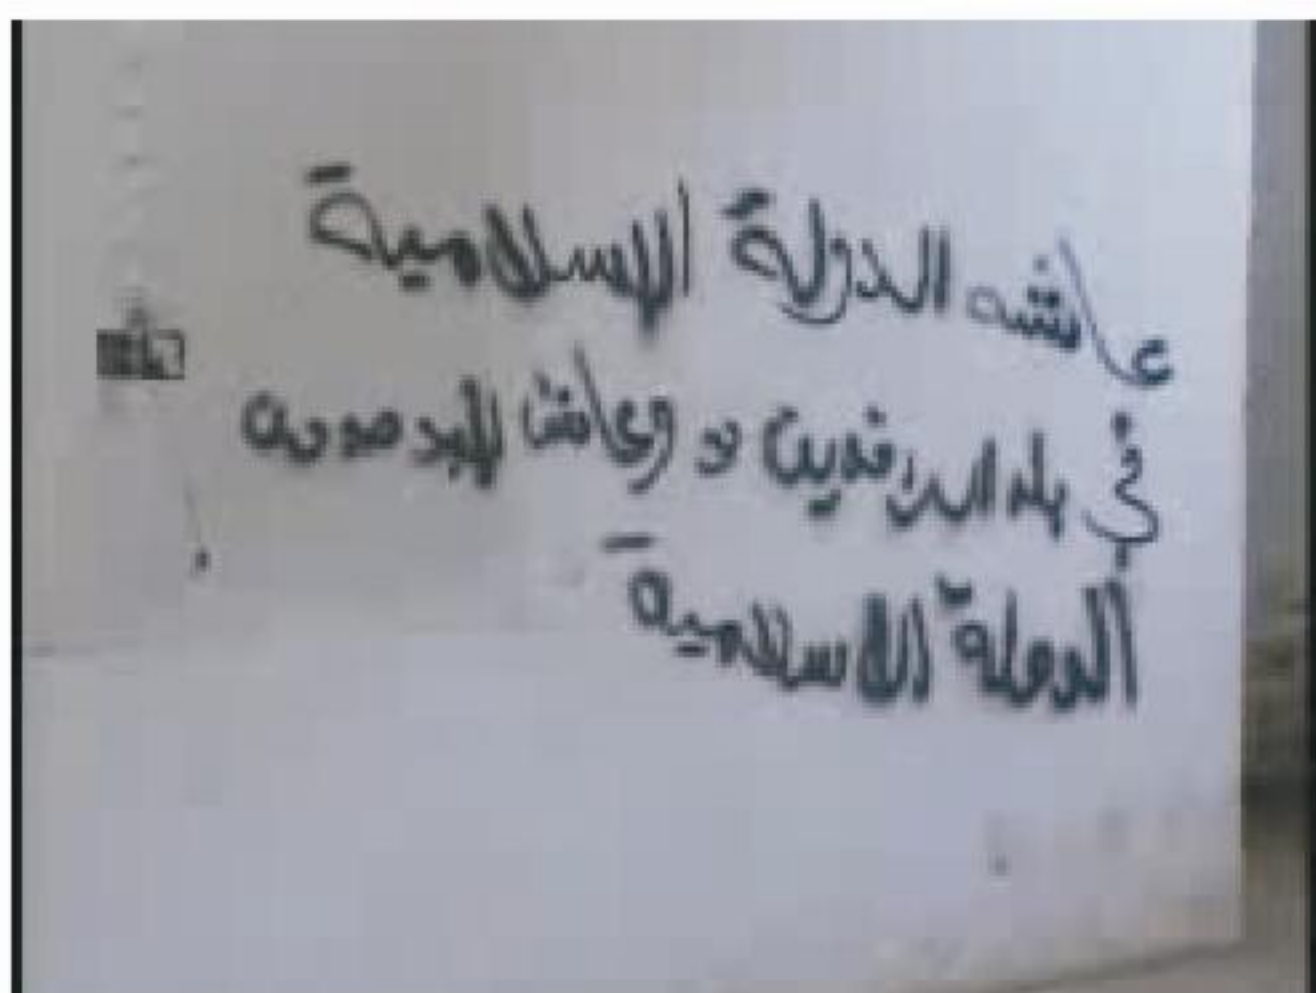 عاشه الدولة الإسلامية
في بلد الرفدين و وعاش
الدولة الاسلامية